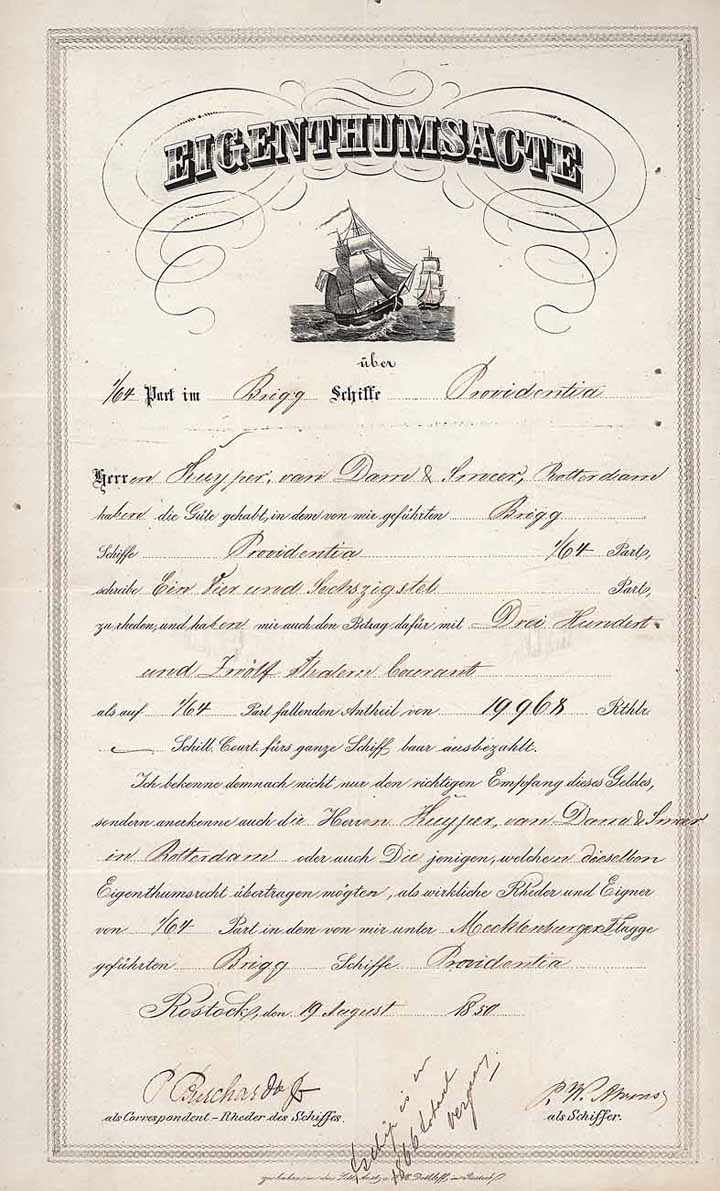 EIGENTHUMSACTE
über
1/64 Part im Brigg Schiffe Providentia
Herren Kuyper, van Dam & Smeer, Rotterdam
haben die Güte gehabt, in dem von mir geführten Brigg
Schiffe Providentia 1/64 Part,
schreibe Ein Vier und Sechszigstel Part,
zu rheden, und haben mir auch den Betrag dafür mit Drei Hundert
und Zwölf Thalern Courant
als auf 1/64 Part fallenden Antheil von 19968 Rthlr.
— Schill. Court. fürs ganze Schiff baar ausbezahlt.
Ich bekenne demnach nicht nur den richtigen Empfang dieses Geldes,
sondern anerkenne auch die Herren Kuyper, van Dam & Smeer
in Rotterdam oder auch Die jenigen, welchen dieselben
Eigenthumsrecht übertragen mögten, als wirkliche Rheder und Eigner
von 1/64 Part in dem von mir unter Mecklenburger Flagge
geführten Brigg Schiffe Providentia
Rostock, den 19 August 1850
P. Burchard
als Correspondent-Rheder des Schiffes.
P. W. Ahrens
als Schiffer.
schip is in
1866
vergaan
zu haben in der